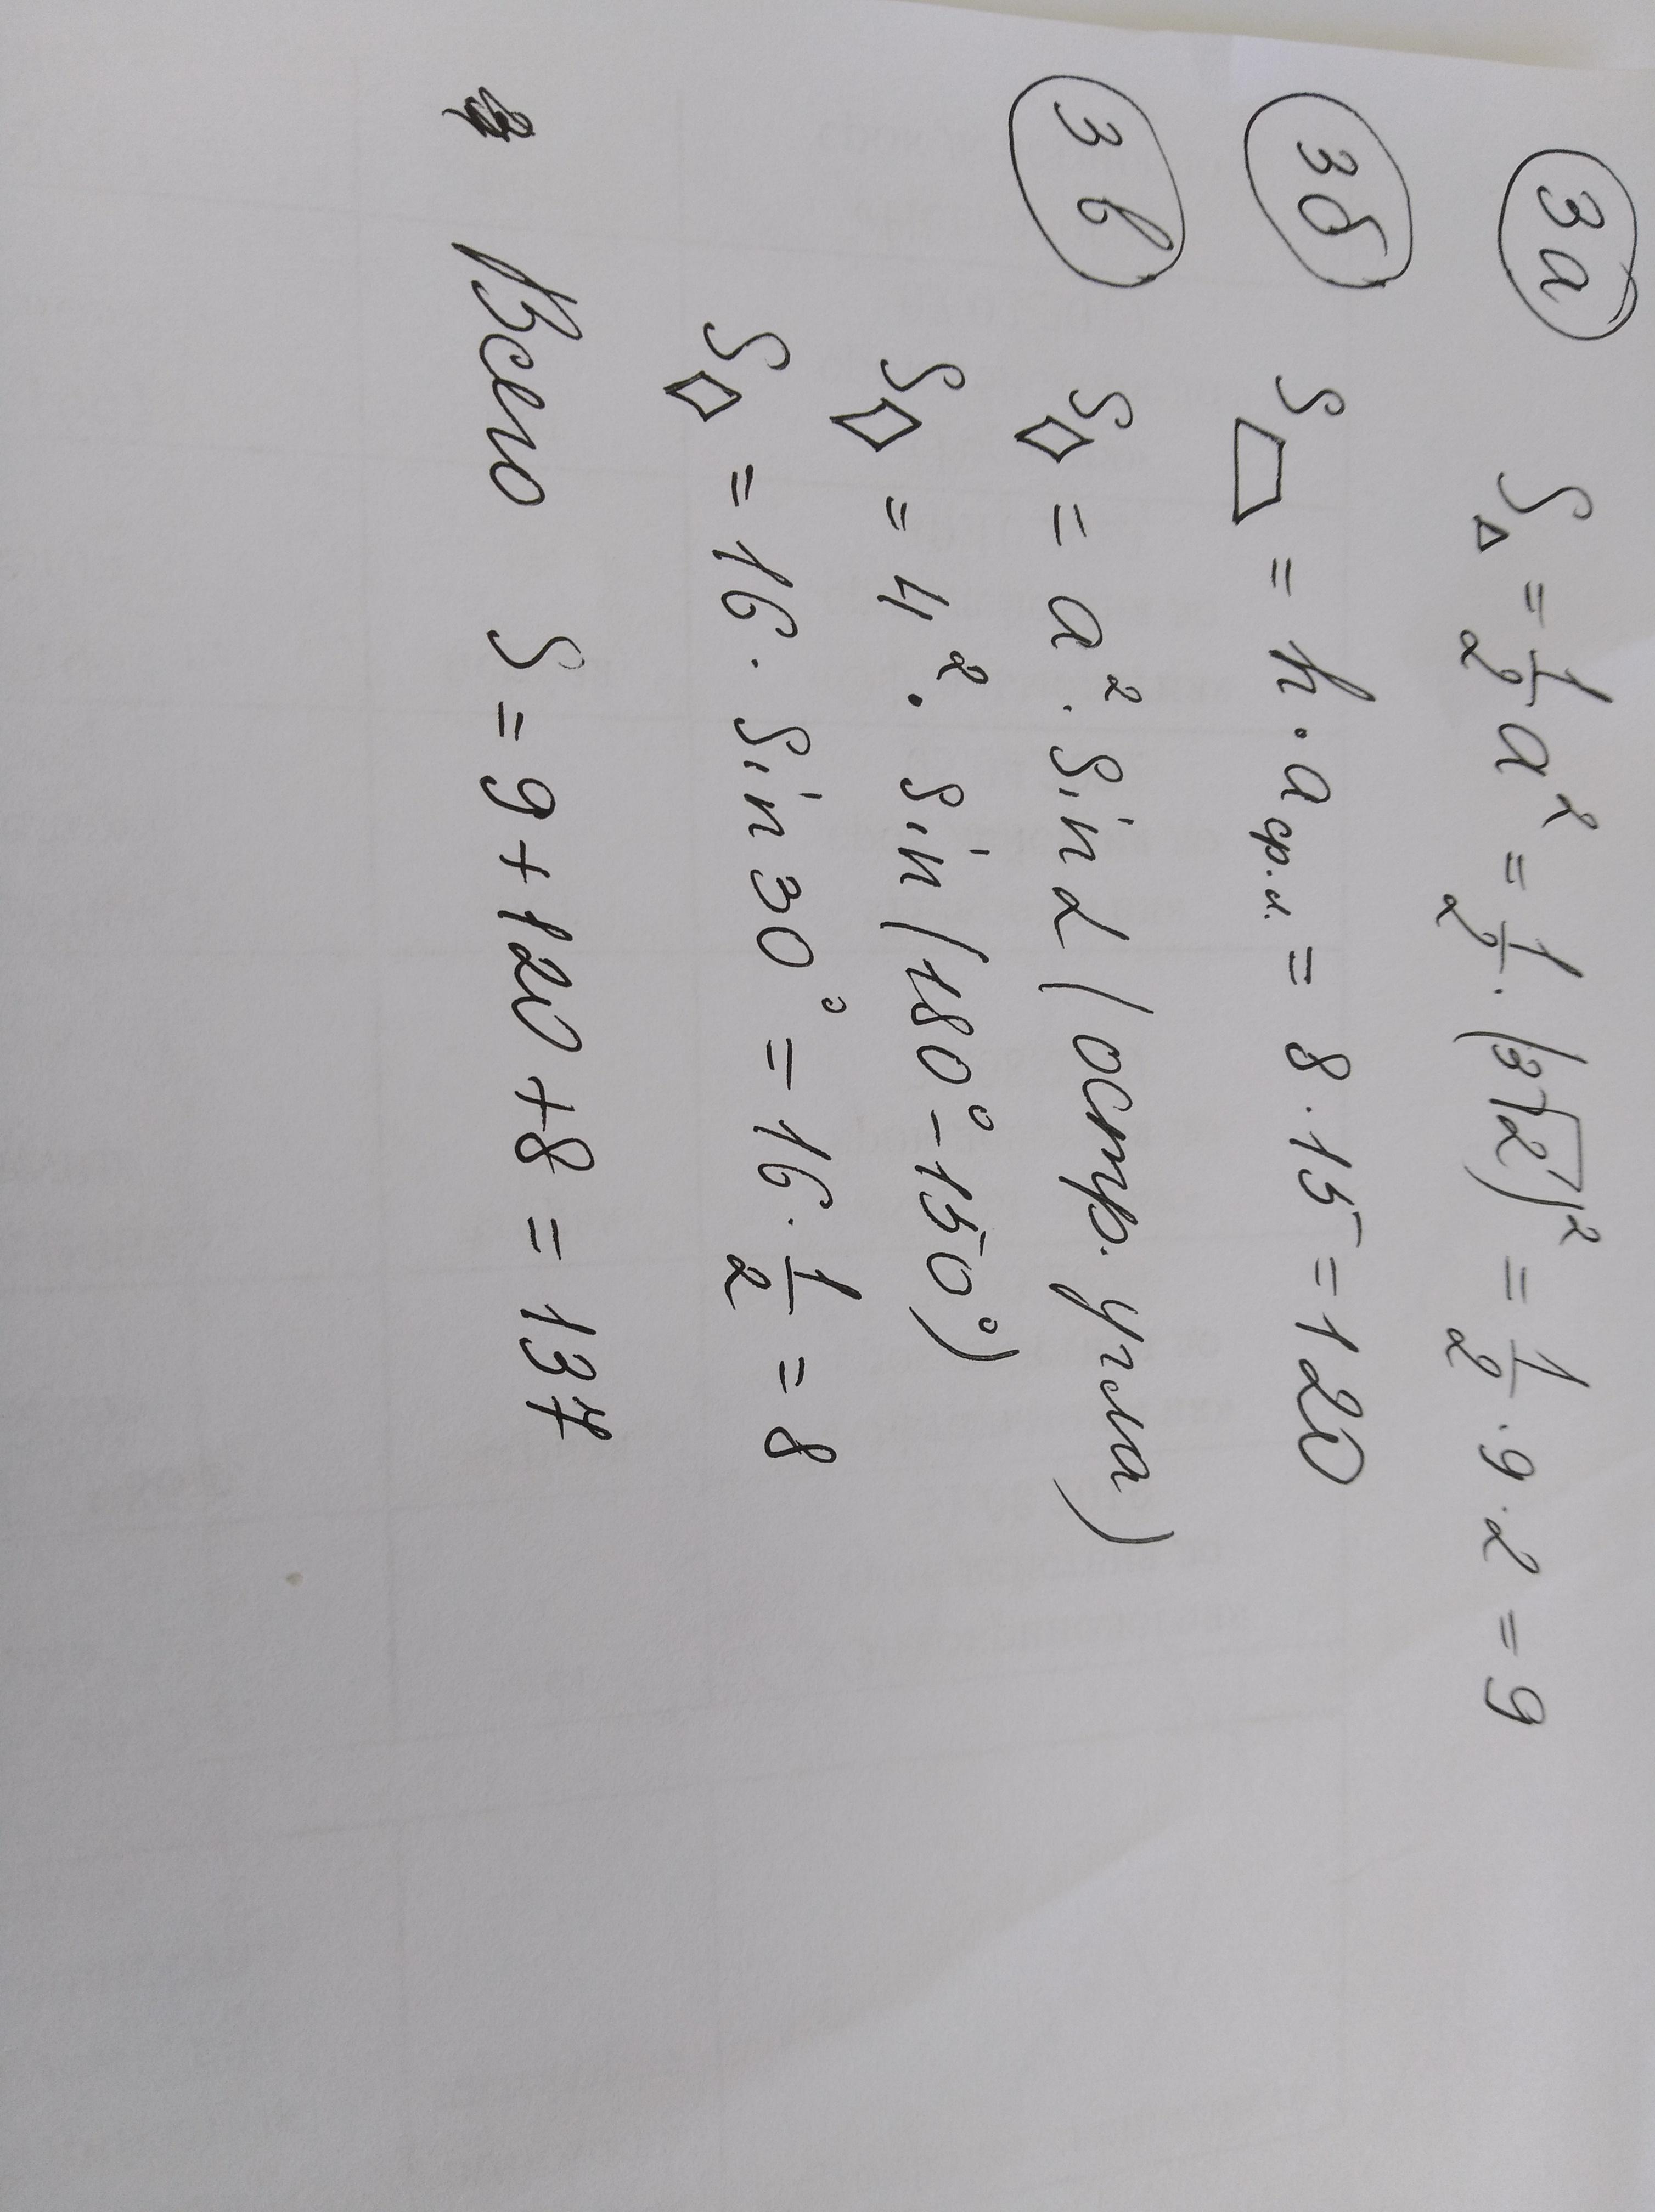 3а S△ = 1/2 a² = 1/2 · (3√2)² = 1/2 · 9 · 2 = 9
3б S⏢ = h · a ср.л. = 8 · 15 = 120
3в S◇ = a² · Sin α (остр. угла)
S◇ = 4² · Sin (180° - 150°)
S◇ = 16 · Sin 30° = 16 · 1/2 = 8
Всего S = 9 + 120 + 8 = 137